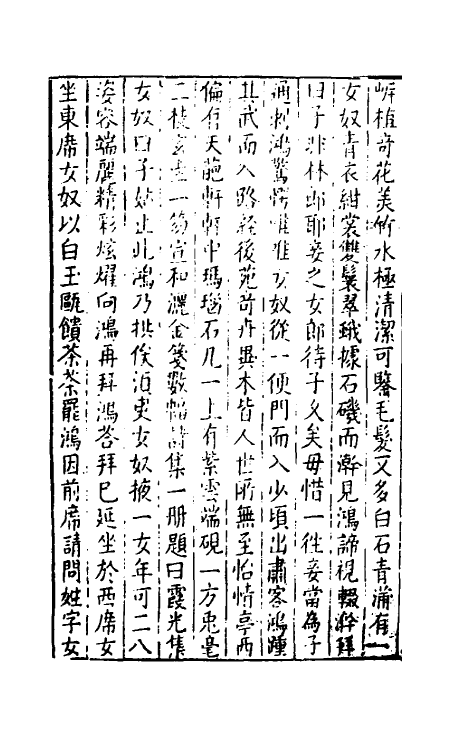 嶼植奇花美竹水極清潔可鑒毛髮又多白石青蒲有一
女奴青衣紺裳雙鬟翠蛾據石磯而澣見鴻諦視輟澣拜
曰子非林郎耶妾之女郎待子久矣毋惜一徃妾當為子
通刺鴻驚愕唯唯女奴從一便門而入少頃出肅客鴻踵
其武而入路經後苑奇卉異木皆人世所無至怡情亭西
偏有天葩軒軒中瑪瑙石几一上有紫雲端硯一方兎毫
二枝玄圭一笏宣和灑金箋數幅詩集一册題曰霞光集
女奴曰子姑止此鴻乃拱俟須臾女奴掖一女年可二八
姿容端麗精彩炫燿向鴻再拜鴻荅拜已延坐於西席女
坐東席女奴以白玉甌饋茶茶罷鴻因前席請問姓字女